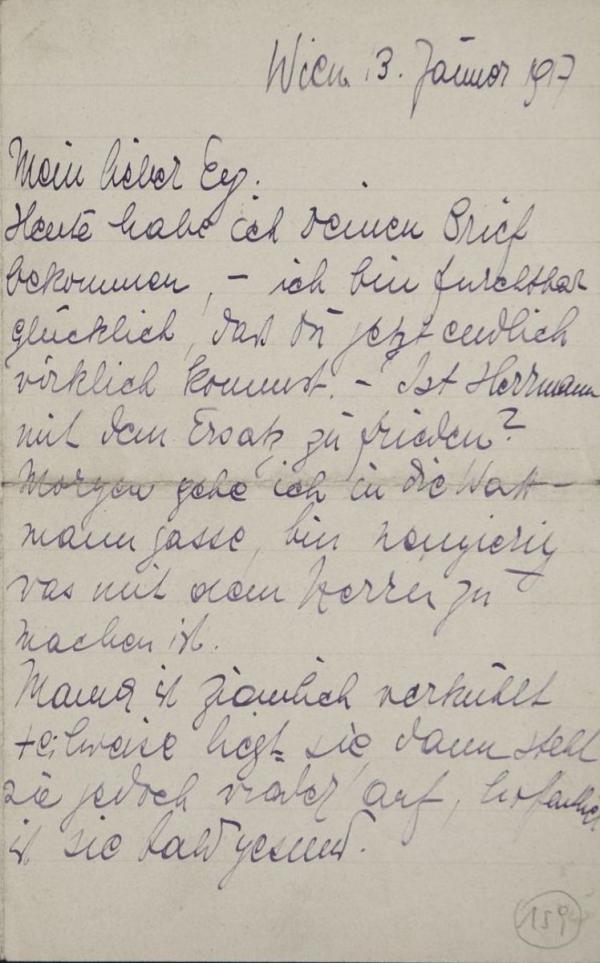 Wien 13. Jänner 1917
Mein lieber Eg.
Heute habe ich deinen Brief
bekommen, – ich bin furchtbar
glücklich, daß du jetzt endlich
wirklich kommst. – Ist Herrmann
mit dem Ersatz zufrieden?
Morgen gehe ich in die Watt-
manngasse, bin neugierig
was mit dem Herrn zu
machen ist.
Mama ist ziemlich verkühlt
teilweise liegt sie, dann steht
sie jedoch wieder auf, hofentlich
ist sie bald gesund.
159